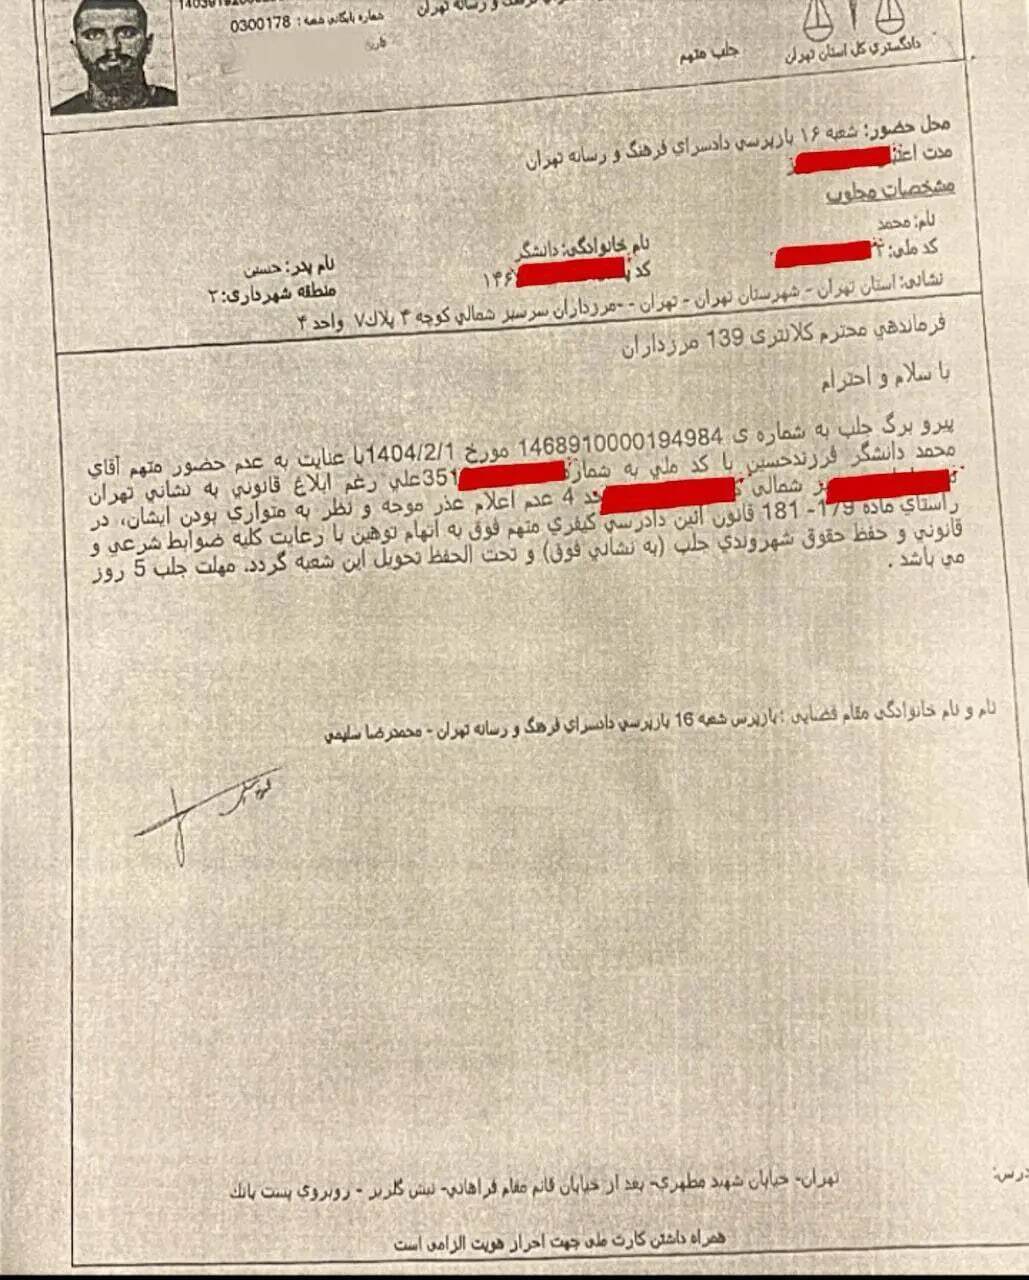 شماره بایگانی شعبه : 0300178
تاریخ
فرهنگ و رسانه تهران
جلب متهم
دادگستری کل استان تهران
محل حضور: شعبه ۱۶ بازپرسي دادسراي فرهنگ و رسانه تهران
مدت
مشخصات مجلوب
نام: محمد
نام خانوادگي: دانشگر
نام پدر: حسين
کد ملي: ۲
کد ۱۴۶
منطقه شهرداری: ۲
نشانی: استان تهران - شهرستان تهران - تهران - -مرزداران سرسبز شمالي کوچه ۴ پلاک۷ واحد ۴
فرماندهي محترم کلانتری 139 مرزداران
با سلام و احترام
پيرو برگ جلب به شماره ی 1468910000194984 مورخ 1404/2/1با عنايت به عدم حضور متهم آقاي
محمد دانشگر فرزندحسين با کد ملي به شماره 351علي رغم ابلاغ قانوني به نشاني تهران
شمالي 4 عدم اعلام عذر موجه و نظر به متواري بودن ايشان، در
راستاي ماده 179- 181 قانون آئين دادرسي کيفري متهم فوق به اتهام توهين با رعايت کليه ضوابط شرعي و
قانوني و حفظ حقوق شهروندي جلب (به نشاني فوق) و تحت الحفظ تحويل اين شعبه گردد. مهلت جلب 5 روز
مي باشد .
نام و نام خانوادگي مقام قضايي : بازپرس شعبه 16 بازپرسي دادسراي فرهنگ و رسانه تهران - محمدرضا سليمي
تهران- خيابان شهيد مطهري- بعد از خيابان قائم مقام فراهاني- نبش گلريز - روبروي پست بانك
همراه داشتن کارت ملی جهت احراز هويت الزامی است